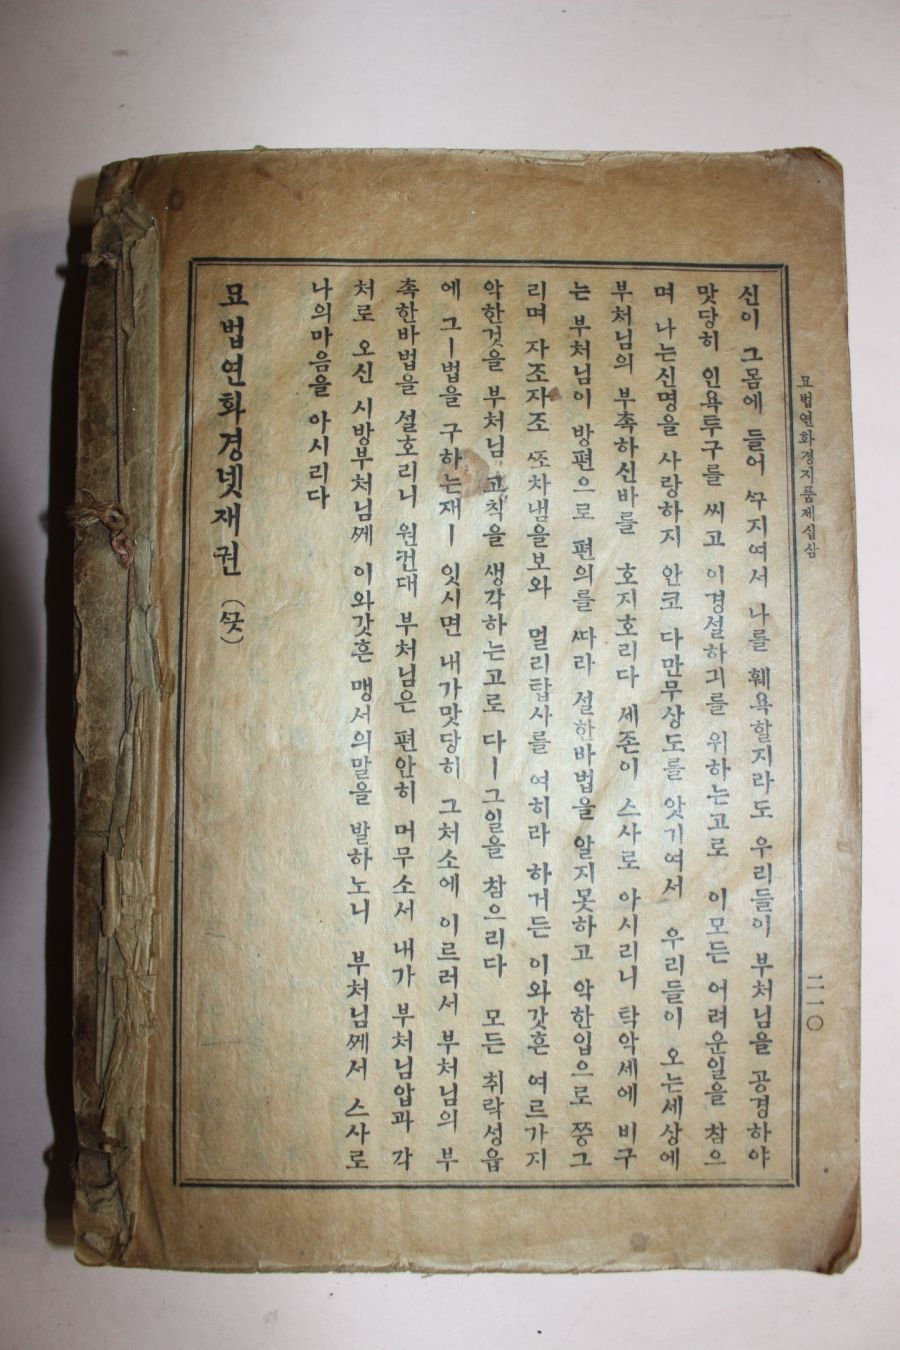 묘법연화경지품제십삼
二一〇
신이 그몸에 들어 ᄭᅮ지여서 나를 훼욕할지라도 우리들이 부처님을 공경하야
맛당히 인욕투구를 씨고 이경설하기를 위하는고로 이모든어려운일을 참으
며 나는신명을 사랑하지 안코 다만무상도를 앗기여서 우리들이 오는세상에
부처님의 부촉하신바를 호지호리다 세존이 스사로 아시리니 탁악세에 비구
는 부처님이 방편으로 편의를 ᄯᅡ라 설한바법을 알지못하고 악한입으로 ᄶᅵᆼ그
리며 자조자조 ᄶᅩ차냄을보와 멀리탑사를 여히라 하거든 이와갓흔 여르가지
악한것을 부처님 고칙을 생각하는고로 다ㅣ그일을 참으리다 모든 취락성읍
에 그ㅣ법을 구하는재ㅣ 잇시면 내가맛당히 그처소에 이르러서 부처님의 부
촉한바법을 설호리니 원컨대 부처님은 편안히 머무소서 내가 부처님압과 각
처로 오신 시방부처님ᄭᅦ 이와갓흔 맹서의말을 발하노니 부처님ᄭᅦ서 스사로
나의마음을 아시리다
묘법연화경넷재권 (ᄭᅳᆺ)